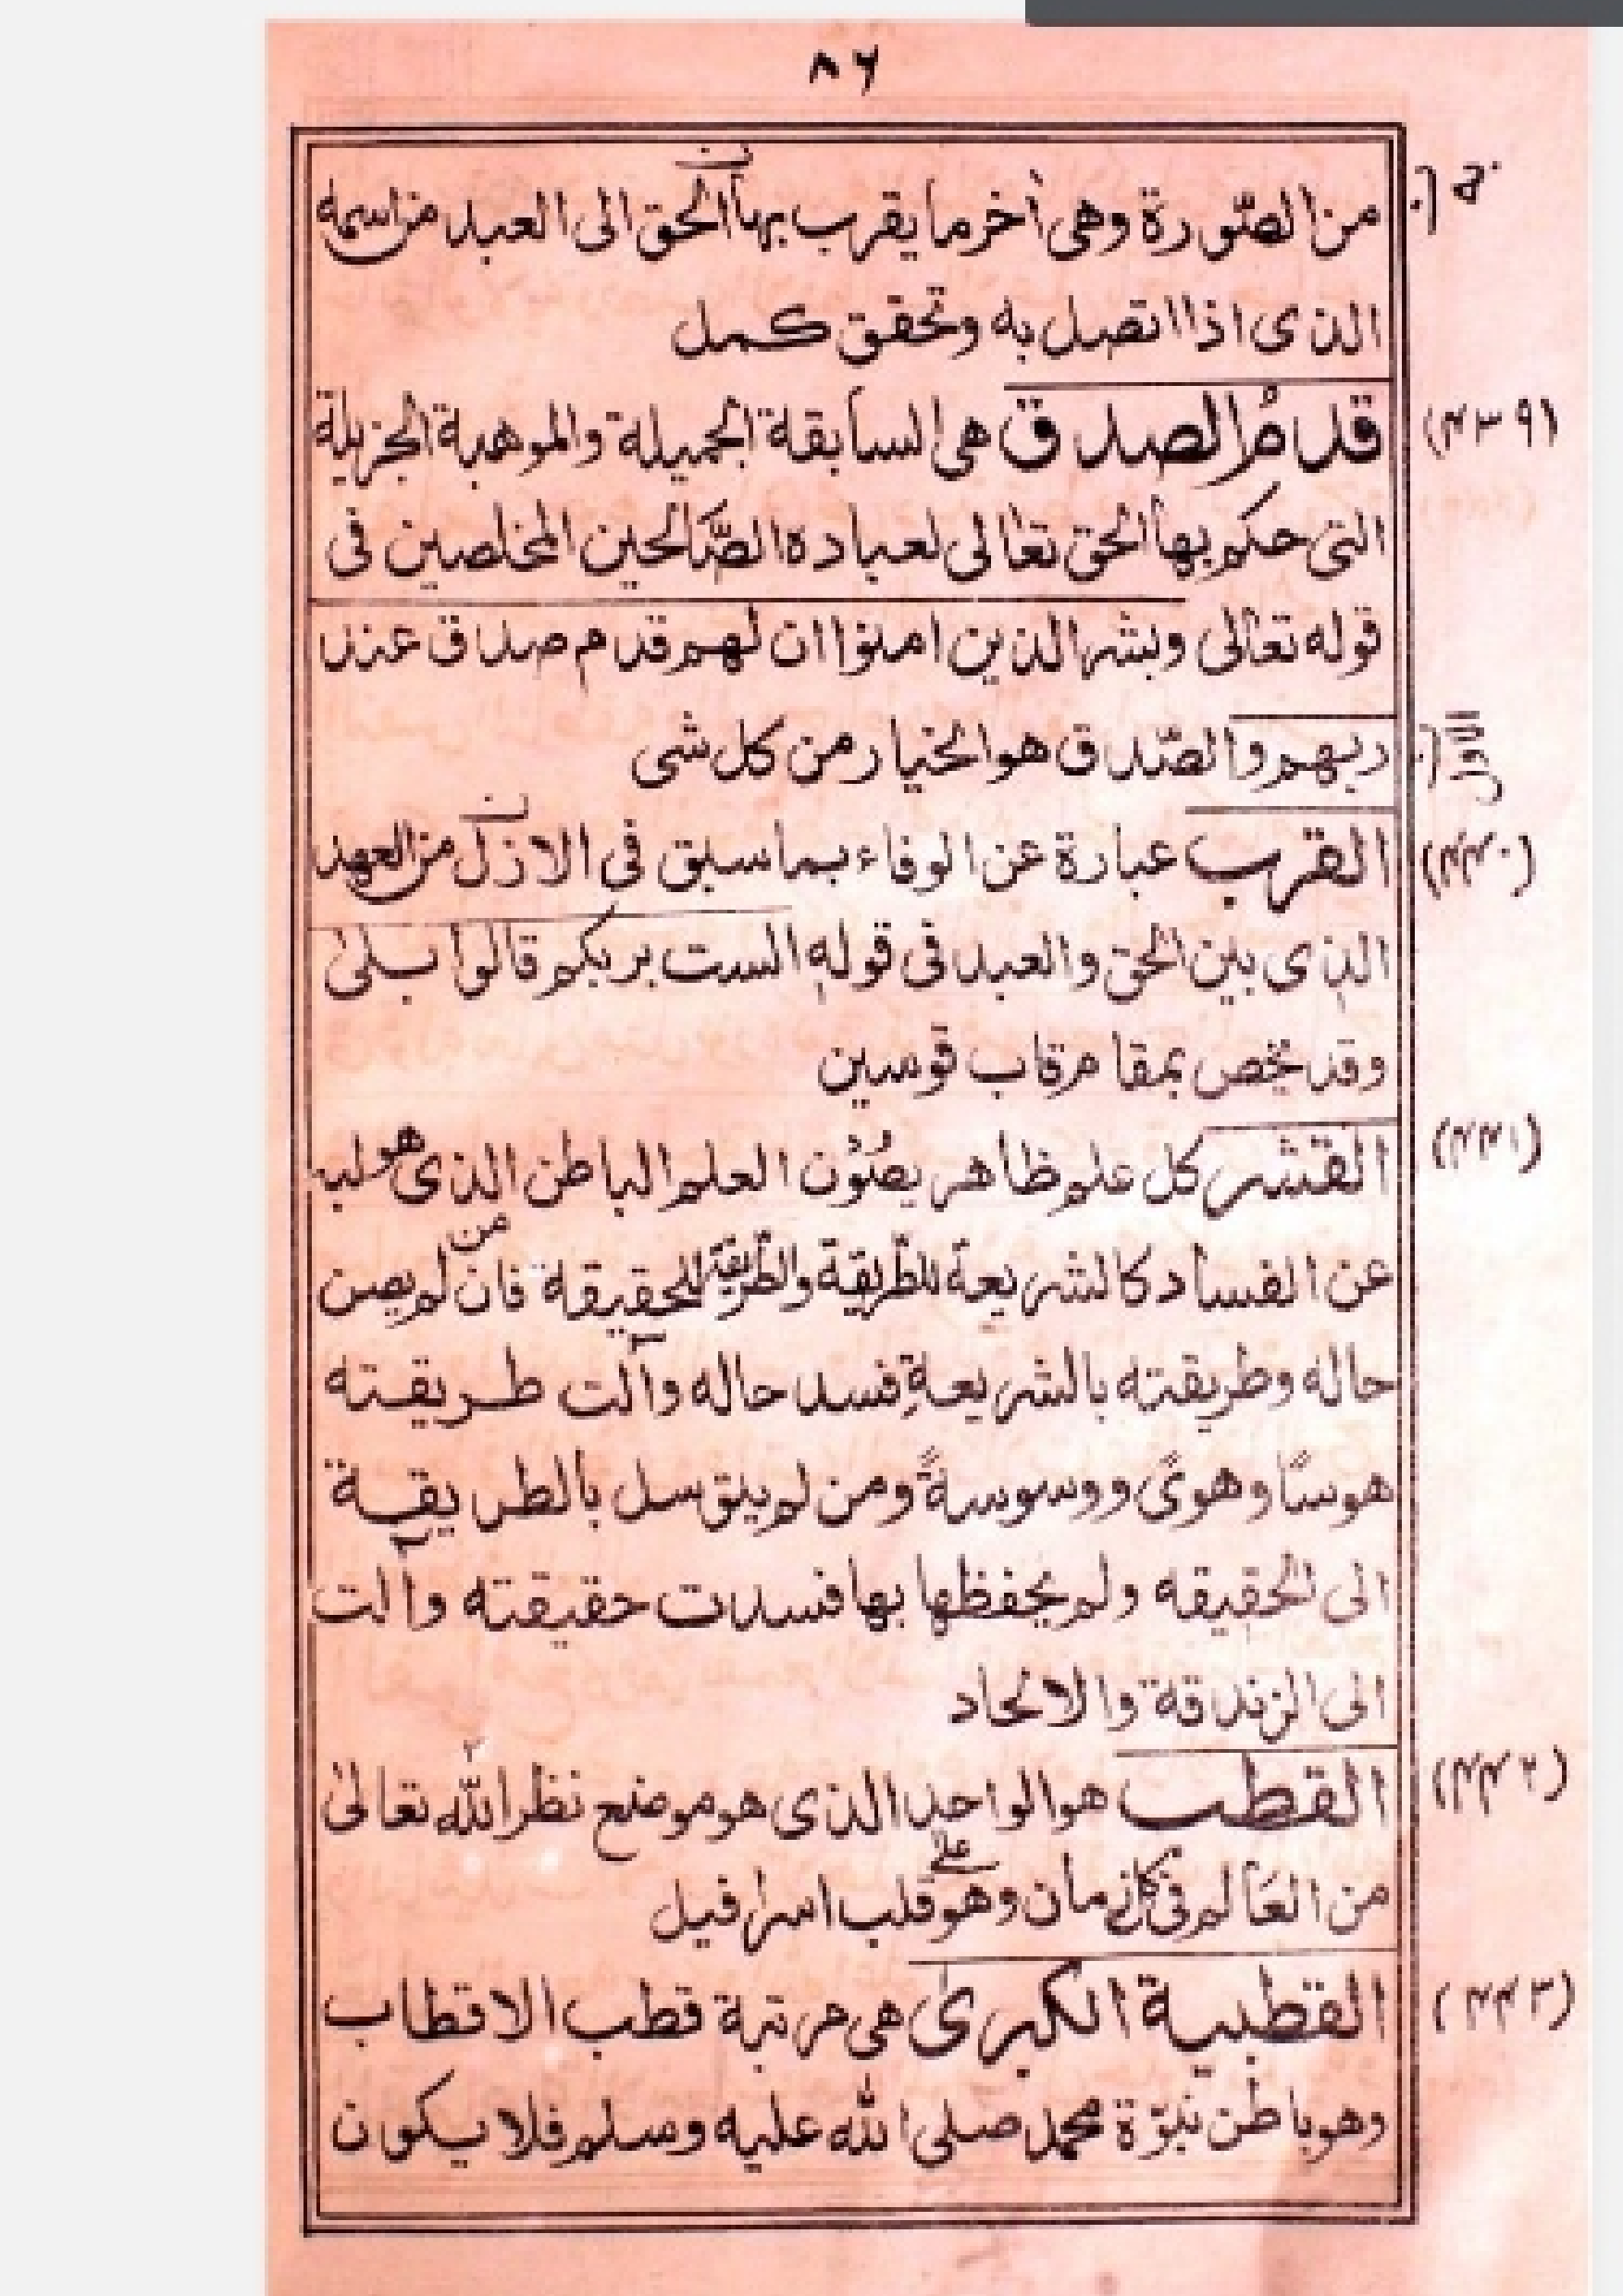 ٨٦
من الصّورة وهى أخر ما يقرب بها الحق الى العبد من اسمه
الذى اذا اتصل به وتحقق كمل
(۴۳۹) قدمُ الصدق هى السابقة الجميلة والموهبة الجزيلة
التى حكم بها الحق تعالى لعباده الصَّالحين المخلصين فى
قوله تعالى وبشر الذين امنوا ان لهم قدم صدق عند
ربهم والصّدق هو الخيار من كل شى
(۴۴۰) القرب عبارة عن الوفاء بما سبق فى الازل من العهد
الذى بين الحق والعبد فى قوله الست بربكم قالوا بلىٰ
وقد تخص بمقام قاب قوسين
(۴۴۱) القشر كل علم ظاهر يصُوْن العلم الباطن الذى هو لبه
عن الفساد كالشريعة للطّريقة والطّريقة للحقيقة فان من لم يصن
حاله وطريقته بالشريعةِ فسد حاله وآلت طريقته
هوسًا وهوىً ووسوسةً ومن لم يتوسل بالطريقية
الى الحقيقه ولم يحفظها بها فسدت حقيقته وآلت
الى الزندقة والالحاد
(۴۴۲) القطب هو الواحد الذى هو موضع نظر الله تعالىٰ
من العَالم فى كل زمان وهو على قلب اسرافيل
(۴۴۳) القطبية الكبرىٰ هى مرتبة قطب الاقطاب
وهو باطن نبوّة محمد صلى الله عليه وسلم فلا يكون